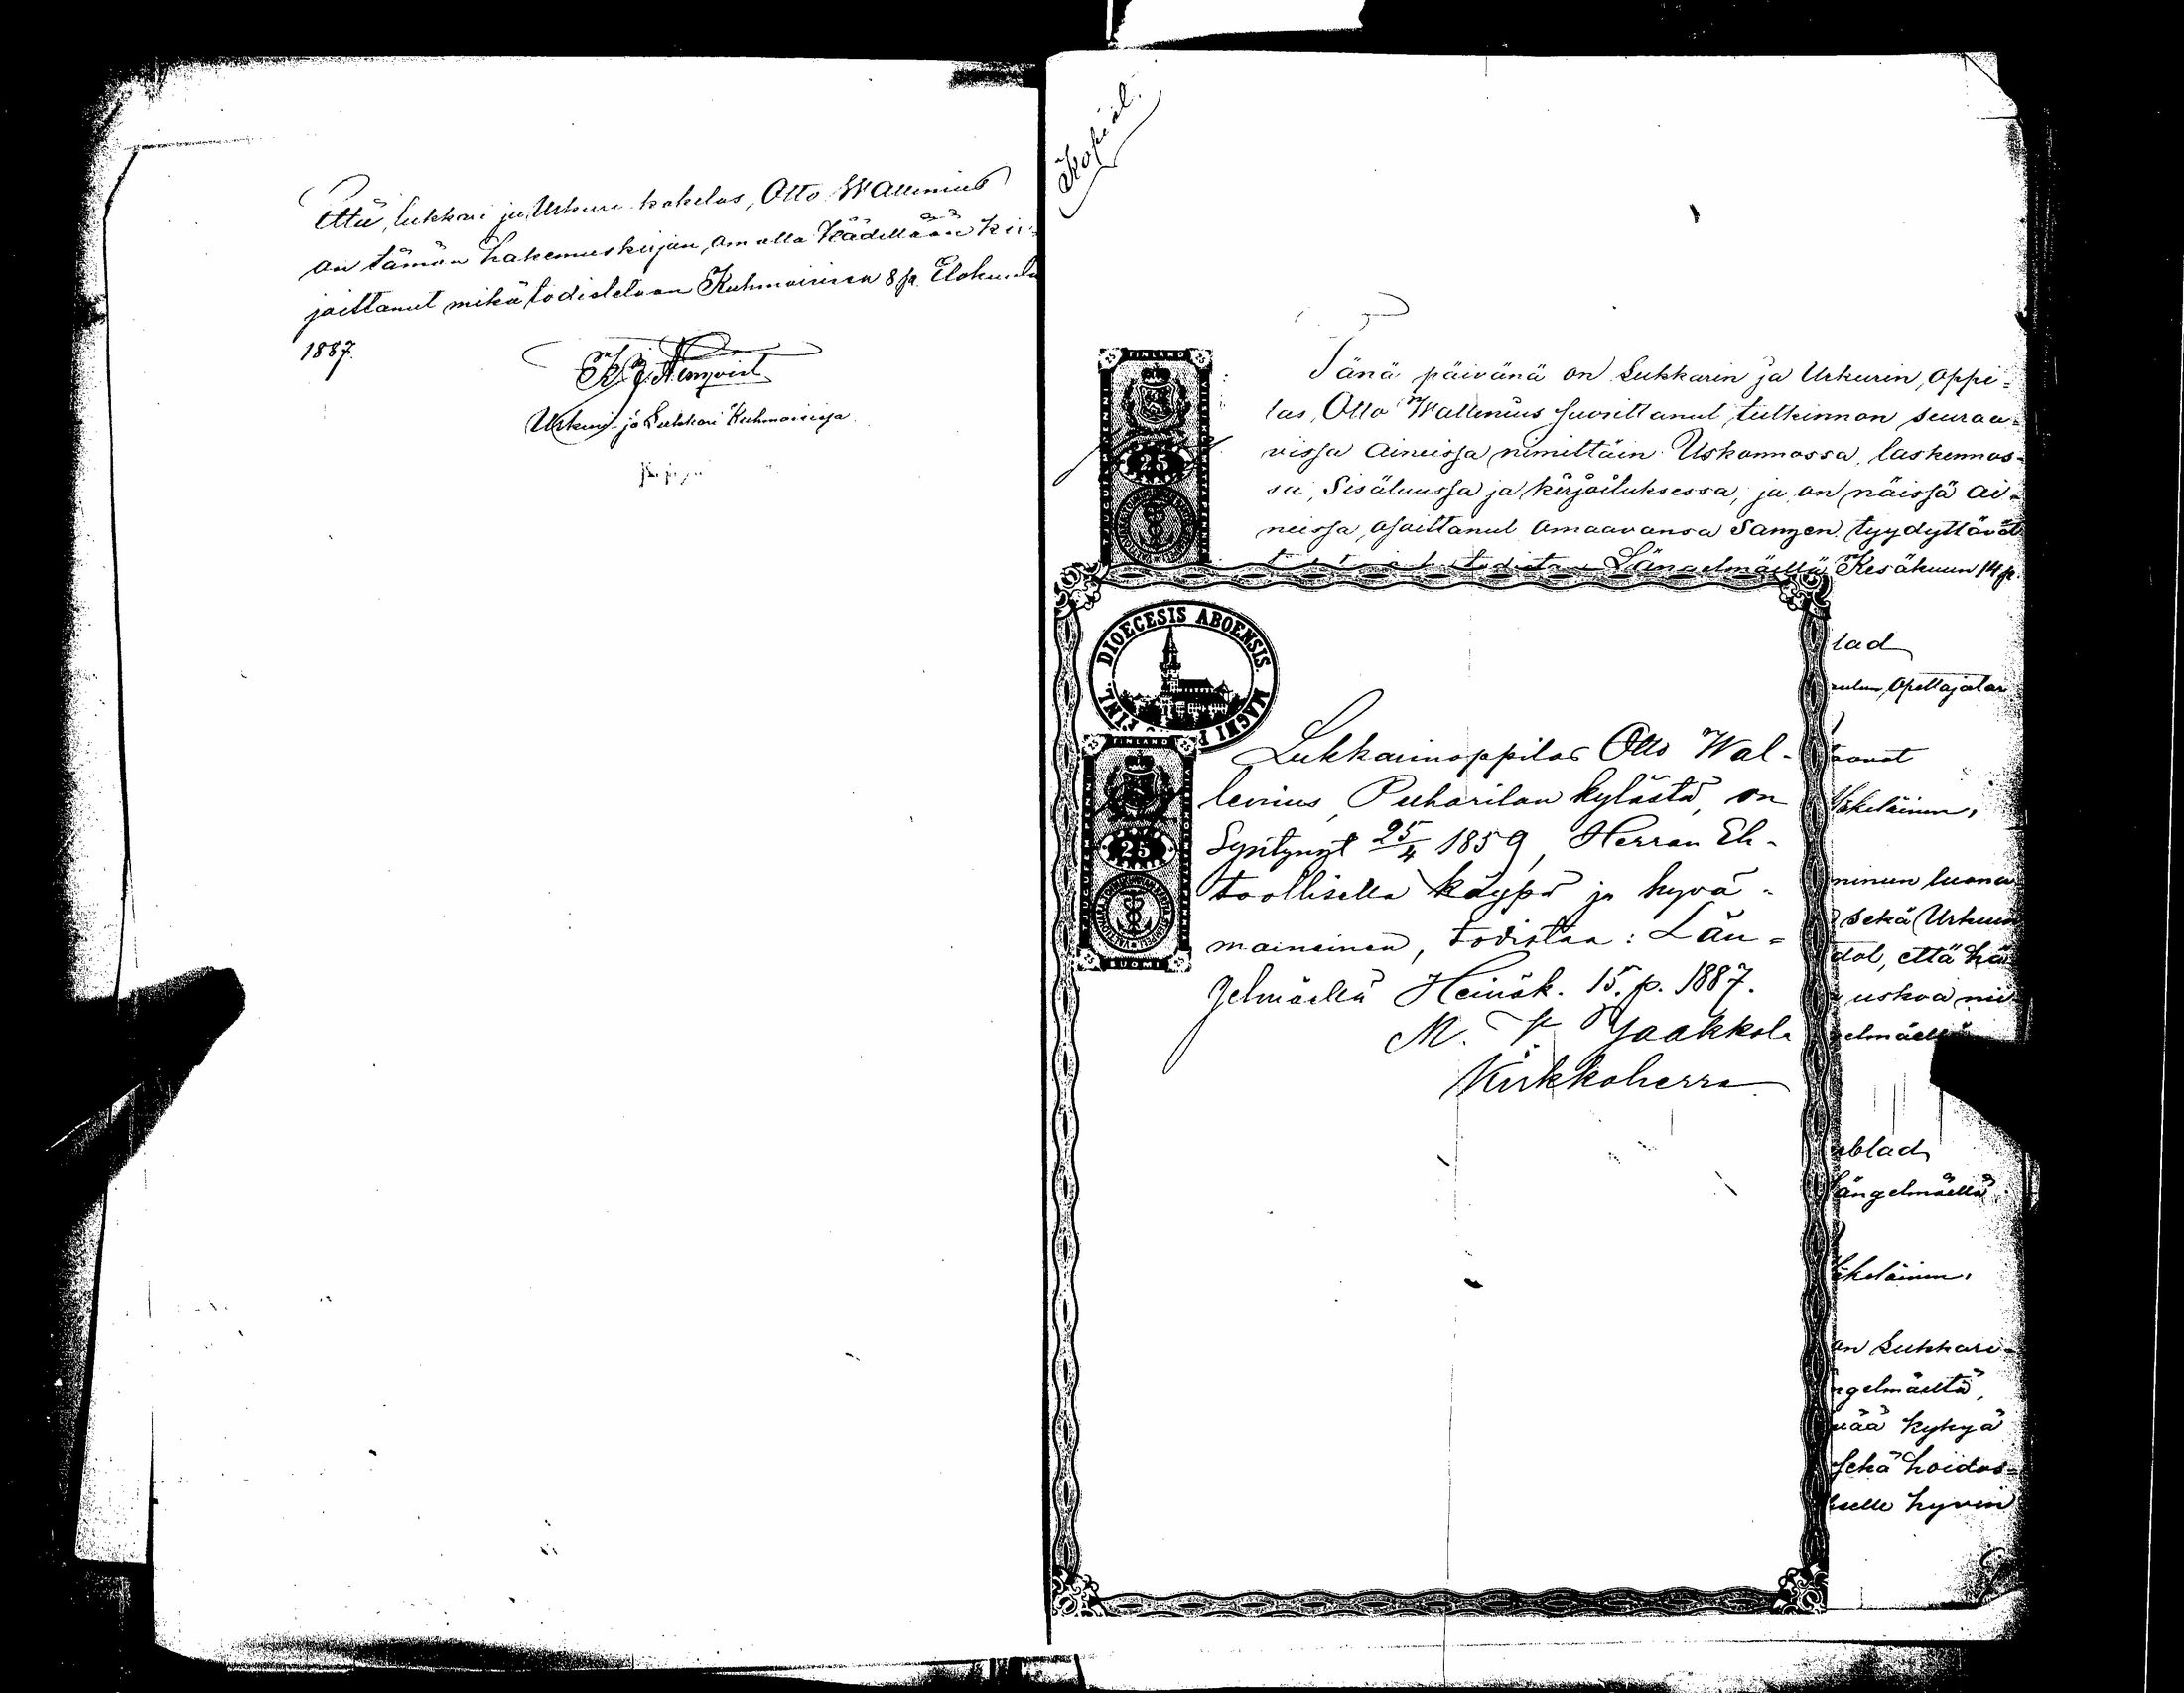 Että, lukkari ja Urkuri kokelas, Otto Wallenius
on tämän hakemuskirjan, omalla kädellään kir-
joittanut mikä todistetaan Kuhmoisissa 8 p. Elokuuta
1887.
Urkuri ja Lukkari Kuhmoisissa.
Kopial.
Tänä päivänä on Lukkarin ja Urkurin, oppi-
las, Otto Wallenius suorittanut tutkinnon seuraa-
vissa aineissa nimittäin Uskonnossa, laskennos-
sa, Sisäluussa ja kirjoituksessa, ja on näissä ai-
neissa, osoittanut omaavansa Sangen tyydyttävät
todistaa Längelmäellä Kesäkuun 14 p.
FINLAND
25
DIOECESIS ABOENSIS. MAGNI FINL.
FINLAND
25
SUOMI
Lukkarinoppilas Otto Wal-
lenius, Puharilan kylästä, on
Syntynyt 25/4 1859, Herran Eh-
toollisella käypä ja hyvä-
maineinen, todistaa: Län-
gelmäellä Heinäk. 15. p. 1887.
M. Jaakkola
Kirkkoherra
lad
Opettajatar
minun luona
sekä Urkuri
että hä
uskoa
elmäellä
blad
ängelmäellä
on Lukkari-
ngelmäeltä,
vää kykyä
sekä hoidos-
selle hyvin